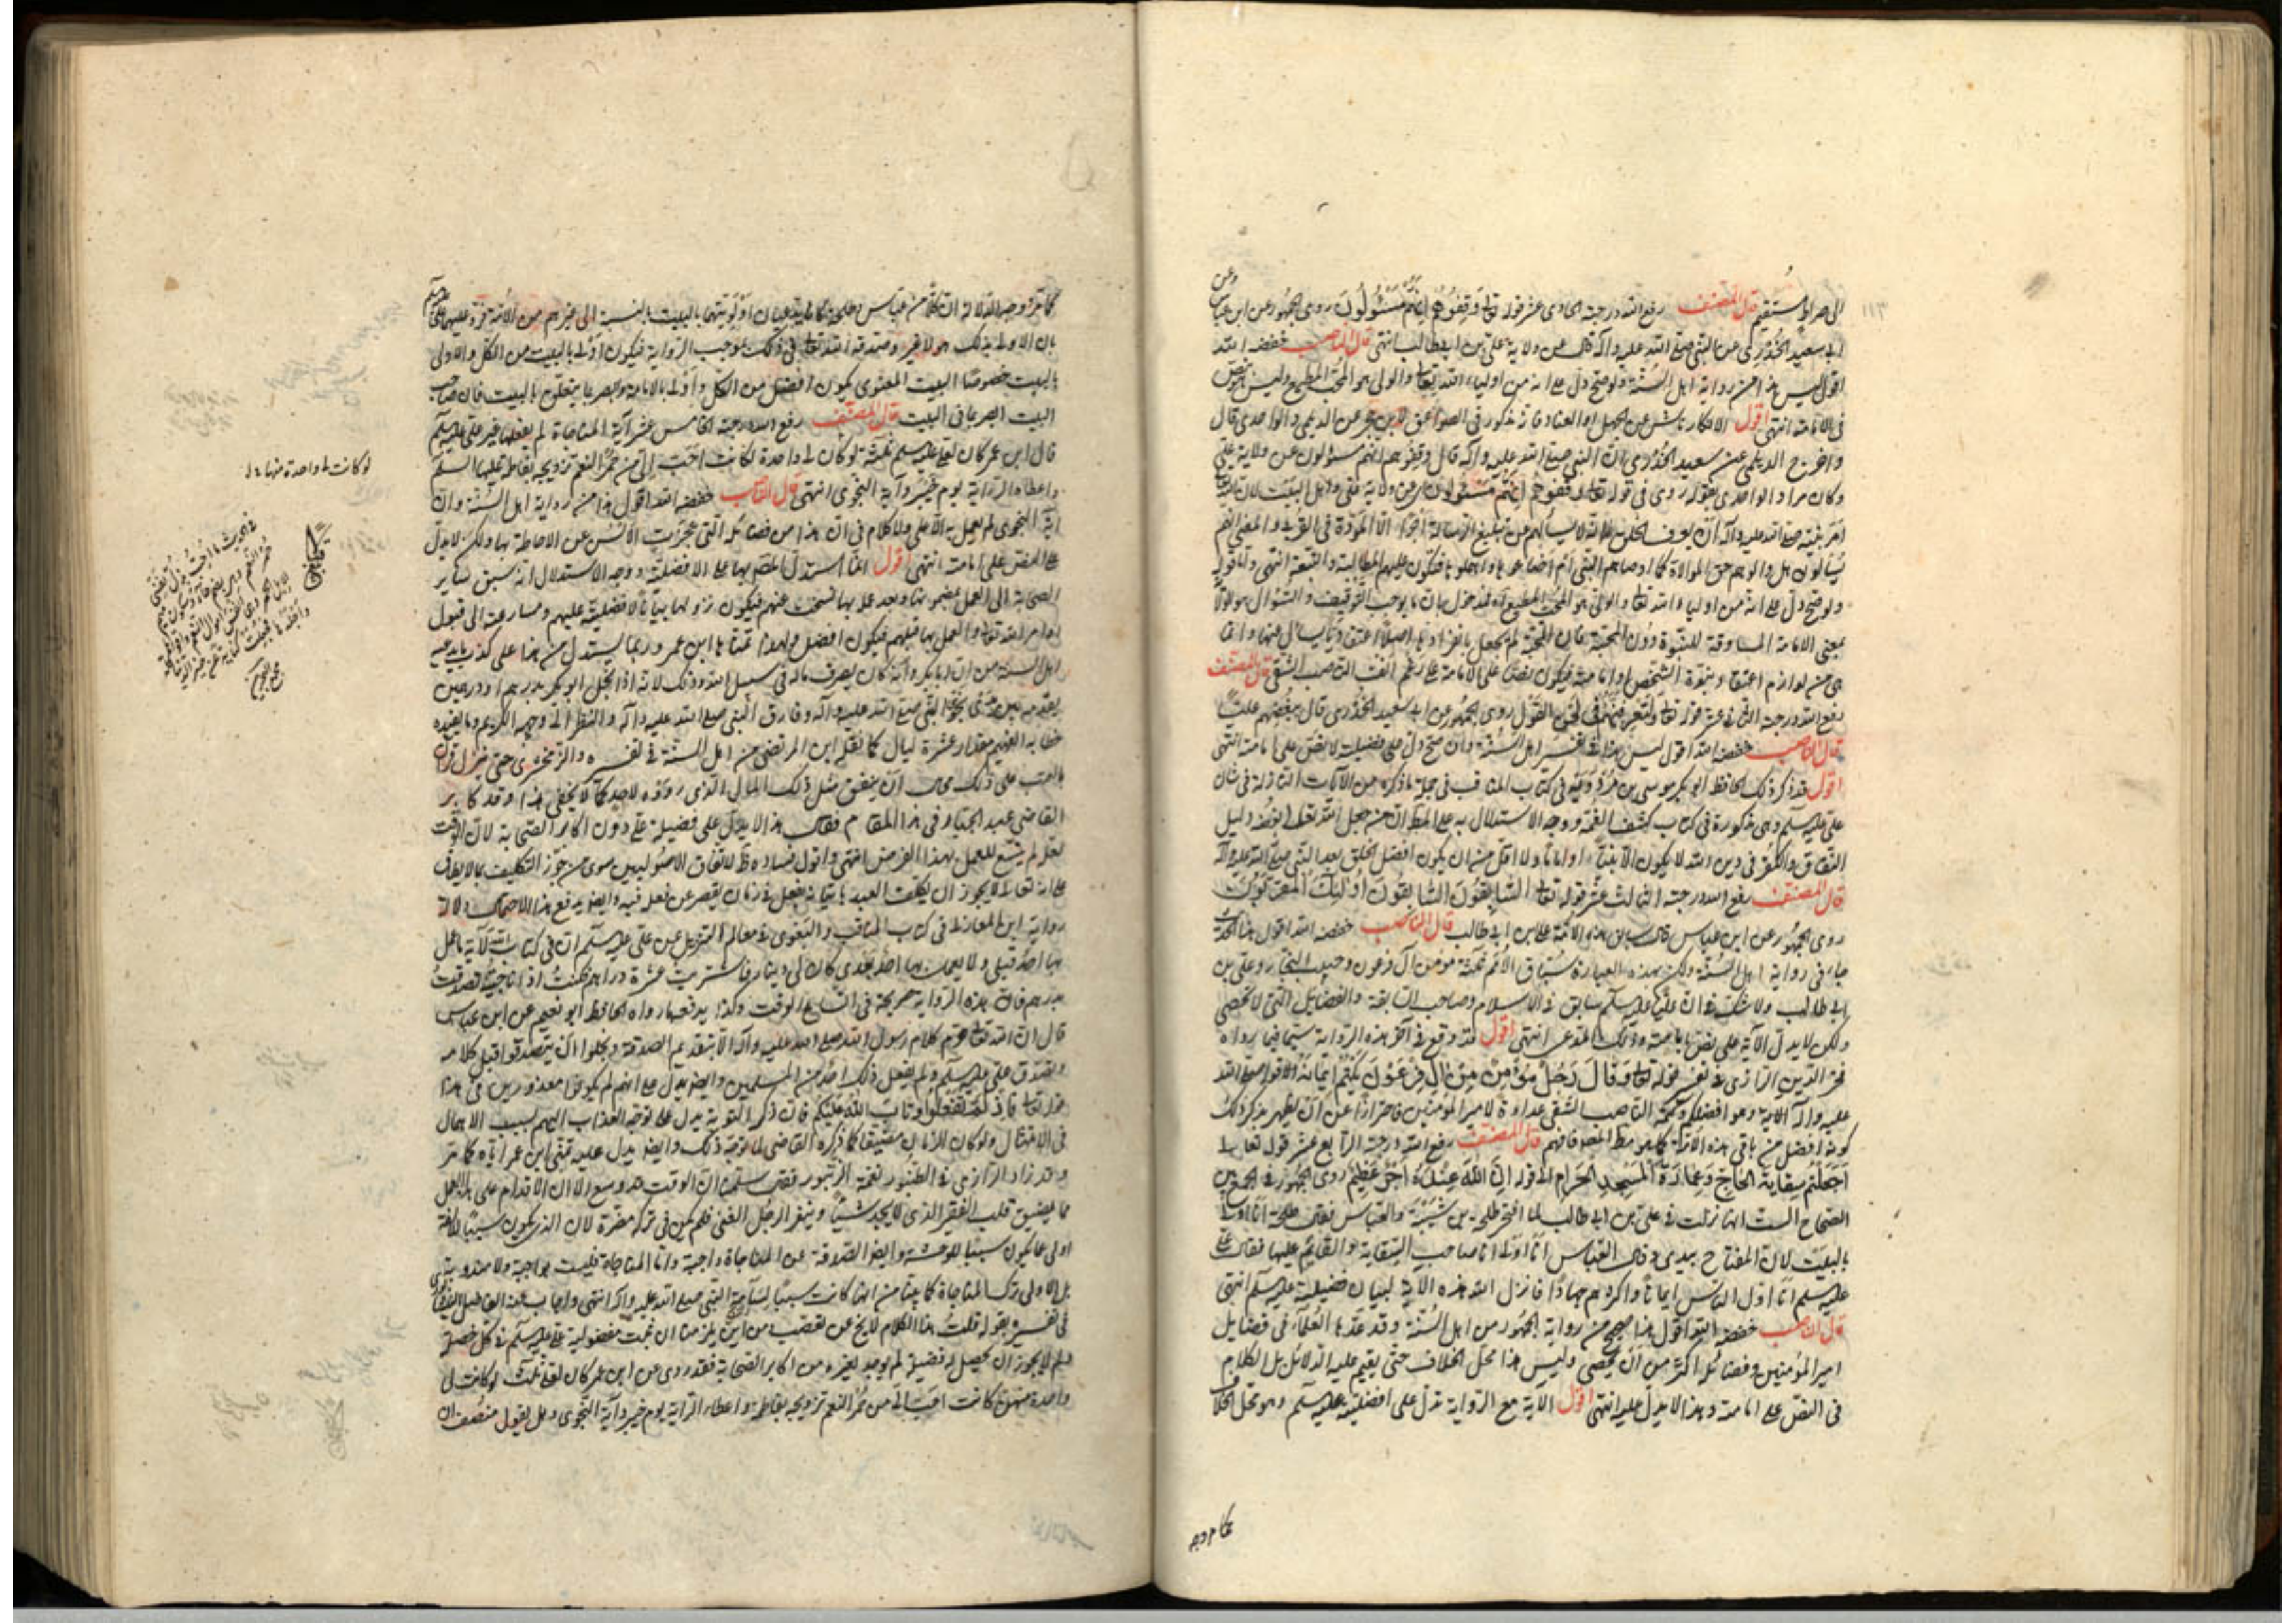 الى صراط مستقيم قال المصنف رفع الله درجته الحادى عشر قوله تعالى وَقِفُوهُمْ إِنَّهُمْ مَسْئُولُونَ روى الجمهور عن ابن عباس وعن
ابى سعيد الخدرى عن النبى صلى الله عليه وآله قال عن ولاية على بن ابى طالب انتهى قال الناصب خفضه الله
اقول ليس هذا من رواية اهل السنة ولو صح دل على انه من اولياء الله تعالى والولى هو المحب المطيع وليس هو نص
فى الامامة انتهى اقول الانكار ناش عن الجهل او العناد فانه مذكور فى الصواعق لابن حجر عن الديلمى والواحدى قال
واخرج الديلمى عن سعيد الخدرى ان النبى صلى الله عليه وآله قال وقفوهم انهم مسئولون عن ولاية على
وكان مراد الواحدى بقوله روى فى قوله تعالى وقفوهم إنهم مسئولون اى عن ولاية على واهل البيت لان الله
امر نبيه صلى الله عليه وآله ان يعرف الخلق انه لا يسألهم عن تبليغ الرسالة اجرا الا المودة فى القربى والمعنى انهم
يسألون هل والوهم حق الموالاة كما اوصاهم النبى ام اضاعوها واهملوها فتكون عليهم المطالبة والتبعة انتهى واما قوله
ولو صح دل على انه من اولياء الله تعالى والولى هو المحب المطيع فمدخول بان ما يوجب التوقيف والسؤال هو الولاء
بمعنى الامامة المساوقة للنبوة دون المحبة
هى من لوازم اعتقاد نبوة الشخص او امامته فيكون نصا على الامامة على رغم انف الناصب الشقى قال المصنف
رفع الله درجته الثانى عشر قوله تعالى وَلَتَعْرِفَنَّهُمْ فِي لَحْنِ الْقَوْلِ روى الجمهور عن ابى سعيد الخدرى قال ببغضهم عليا
قال الناصب خفضه الله اقول ليس هذا فى تفسير اهل السنة وان صح دل على فضيلته لا نص على امامته انتهى
اقول قد ذكر ذلك الحافظ ابو بكر موسى بن مردويه فى كتاب المناقب فى جملة ما ذكره من الآيات النازلة فى شان
على عليه السلم وهى مذكورة فى كتاب كشف الغمة ووجه الاستدلال به على المط ان من جعل الله تعالى بغضه دليل
النفاق والكفر فى دين الله لا يكون الا نبيا او اماما ولا اقل من ان يكون افضل الخلق بعد النبى صلى الله عليه وآله
قال المصنف رفع الله درجته الثالث عشر قوله تعالى السَّابِقُونَ السَّابِقُونَ أُولَئِكَ الْمُقَرَّبُونَ
روى الجمهور عن ابن عباس قال سابق هذه الامة على بن ابى طالب قال الناصب خفضه الله اقول هذا الحديث
جاء فى رواية اهل السنة ولكن بهذه العبارة سباق الامم ثلثة مؤمن آل فرعون وحبيب النجار وعلى بن
ابى طالب ولا شك فى ان عليا عليه السلم سابق فى الاسلام وصاحب السابقة والفضايل التى لا تحصى
ولكن لا يدل الآية على نص بامامته وذلك المدعى انتهى اقول قد وقع فى آخر هذه الرواية سيما فيما رواه
فخر الدين الرازى فى تفسير قوله تعالى وَقَالَ رَجُلٌ مُؤْمِنٌ مِنْ آلِ فِرْعَوْنَ يَكْتُمُ إِيمَانَهُ
عليه وآله الآية وهو افضلهم وكتمه الناصب الشقى عداوة لامير المؤمنين فاحترازا عن ان يظهر بذكر ذلك
كونه افضل من باقى هذه الامة كما هو مط المصنف فافهم قال المصنف رفع الله درجته الرابع عشر قوله تعالى
أَجَعَلْتُمْ سِقَايَةَ الْحَاجِّ وَعِمَارَةَ الْمَسْجِدِ الْحَرَامِ الى قوله إِنَّ اللَّهَ عِنْدَهُ أَجْرٌ عَظِيمٌ روى الجمهور فى الجمع بين
الصحاح الست انها نزلت فى على بن ابى طالب لما افتخر طلحة بن شيبة والعباس فقال طلحة انا اولى
بالبيت لان المفتاح بيدى وقال العباس انا اولى انا صاحب السقاية والقائم عليها فقال على
عليه السلم انا اول الناس ايمانا واكثرهم جهادا فانزل الله هذه الآية لبيان فضيلته عليه السلم انتهى
قال الناصب خفضه الله اقول هذا صحيح من رواية الجمهور من اهل السنة وقد عدها العلماء فى فضايل
امير المؤمنين وفضائله اكثر من ان تحصى وليس هذا محل الخلاف حتى يقيم عليه الدلائل بل الكلام
فى النص على امامته وهذا لا يدل عليه انتهى اقول الآية مع الرواية تدل على افضليته عليه السلم وهو محل الخلاف
كما مر وجه
كما مر وجه الدلالة ان كلا من عباس وطلحة كانا يدعيان اولويتهما بالبيت بالنسبة الى غيرهم من الامة فرد عليهما على عليه السلم
بان الاولى بذلك هو لا غير وصدقه الله تعالى فى ذلك بموجب الرواية فيكون اولى بالبيت من الكل والاولى
بالبيت خصوصا البيت المعنوى يكون افضل من الكل واولى بالامامة والبصير بما يتعلق بالبيت فان صاحب
البيت ابصر بما فى البيت قال المصنف رفع الله درجته الخامس عشر آية المناجاة لم يفعلها غير على عليه السلم
قال ابن عمر كان لعلى عليه السلم ثلثة لو كان لى واحدة لكانت احب الى من حمر النعم تزويجه بفاطمة عليها السلم
واعطاء الراية يوم خيبر وآية النجوى انتهى قال الناصب خفضه الله اقول هذا من رواية اهل السنة وان
آية النجوى لم يعمل بها الا على ولا كلام فى ان هذا من فضائله التى عجزت الالسن عن الاحاطة بها ولكن لا يدل
على النص على امامته انتهى اقول انما استدل المصنف بها على الافضلية ووجه الاستدلال انه سبق ساير
الصحابة الى العمل بمضمونها وبعد عمله بها نسخت عنهم فيكون نزولها بيانا لافضليته عليهم ومسارعته الى قبول
اوامر الله تعالى والعمل بها قبلهم فيكون افضل ولهذا تمناها ابن عمر وربما يستدل من هذا على كذب ما يدعيه
اهل السنة من ان ابا بكر كان يصرف ماله فى سبيل الله وذلك لانه اذا بخل ابو بكر بدرهم او درهمين
يقدمه بين يدى نجوى النبى صلى الله عليه وآله وفارق النبى صلى الله عليه وآله والنظر الى وجهه الكريم وما يفيده
خطابه العظيم مقدار عشرة ليال كما نقله ابن المرتضى من اهل السنة فى تفسيره والزمخشرى حتى نزل قرآن
بالعتب على ذلك محال ان ينفق مثل ذلك المال الذى رووه لاحد كما لا يخفى هذا وقد كابر
القاضى عبد الجبار فى هذا المقام فقال هذا لا يدل على فضيلة على دون اكابر الصحابة لان الوقت
لعل لم يتسع للعمل بهذا الفرض انتهى واقول فساده ظ لاتفاق الاصوليين سوى من جوز التكليف بما لا يطاق
على انه تعالى لا يجوز ان يكلف العبد باتيان فعل فى زمان يقصر عن فعله فيه وايضا يدفع هذا الاحتمال دلالة
رواية ابن المغازلى فى كتاب المناقب والبغوى فى معالم التنزيل عن على عليه السلم ان فى كتاب الله لآية ما عمل
بها احد قبلى ولا يعمل بها احد بعدى كان لى دينار فاشتريت عشرة دراهم فكنت اذا ناجيته تصدقت
بدرهم فان هذه الرواية صريحة فى اتساع الوقت وكذا يدفعه ما رواه الحافظ ابو نعيم عن ابن عباس
قال ان الله تعالى حرم كلام رسول الله صلى الله عليه وآله الا بتقديم الصدقة وبخلوا ان يتصدقوا قبل كلامه
وتصدق على عليه السلم ولم يفعل ذلك احد من المسلمين وايضا يدل على انهم لم يكونوا معذورين فى هذا
قوله تعالى فإذ لم تفعلوا وتاب الله عليكم فان ذكر التوبة يدل على توجه العذاب اليهم بسبب الاهمال
فى الامتثال ولو كان الزمان مضيقا كما ذكره القاضى لما توجه ذلك وايضا يدل عليه تمنى ابن عمر اياه كما مر
وقد زاد الرازى فى الطنبور نغمة الزنبور فقال سلمنا ان الوقت قد وسع الا ان الاقدام على هذا العمل
مما يضيق قلب الفقير الذى لا يجد شيئا وينفر الرجل الغنى فلم يكن فى تركه مضرة لان الذى يكون سببا للالفة
اولى عما يكون سببا للوحشة وايضا الصدقة عند المناجاة واجبة واما المناجاة فليست بواجبة ولا مندوبة
بل الاولى ترك المناجاة كما بينا من انها كانت سببا لسآمة النبى صلى الله عليه وآله انتهى واجاب عنه الفاضل النيشابورى
فى تفسيره بقوله قلت هذا الكلام لا يخ عن تعصب من اين يلزمنا ان نثبت مفضولية على عليه السلم فى كل خصلة
ولم لا يجوز ان يحصل له فضيلة لم يوجد لغيره من اكابر الصحابة فقد روى عن ابن عمر كان لعلى ثلث لو كانت لى
واحدة منهن كانت احب الى من حمر النعم تزويجه بفاطمة واعطاء الراية يوم خيبر وآية النجوى وهل يقول منصف ان
لو كانت لى واحدة منها